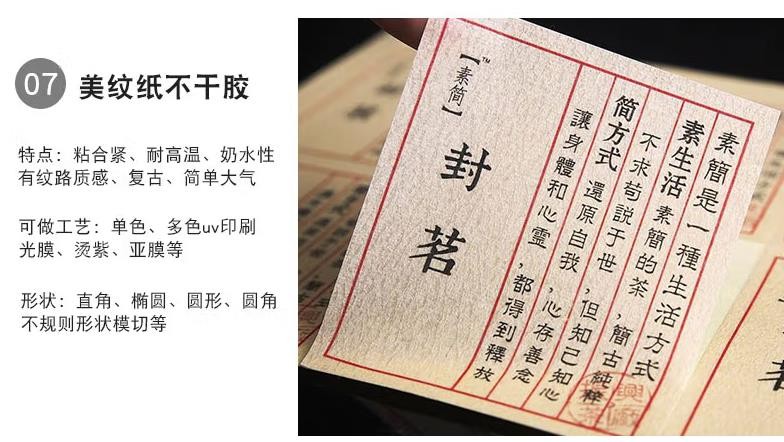 07 美纹纸不干胶
特点：粘合紧、耐高温、奶水性
有纹路质感、复古、简单大气
可做工艺：单色、多色uv印刷
光膜、烫紫、亚膜等
形状：直角、椭圆、圆形、圆角
不规则形状模切等
素簡是一種生活方式
素生活 素簡的茶，簡古純粹。
不求苟説于世，但知己知心
简方式 還原自我，心存善念
讓身體和心靈，都得到釋放
【素简】™
封茗